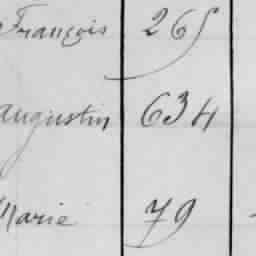 François 265
augustin 634
Marie 79